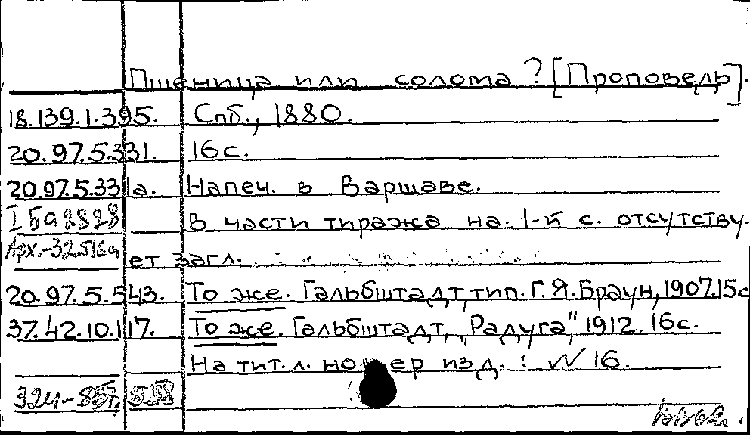 Пшеница или солома? [Проповедь].
18.139.1.395. Спб., 1880.
20.97.5.331. 16 с.
20.97.5.331а. Напеч. в Варшаве.
В части тиража на 1-й с. отсутству-
Арх.-
ет загл.
20.97.5.543. То же. Гальбштадт, тип. Г.Я. Браун, 1907. 15 с
37.42.10.117. То же. Гальбштадт, „Радуга", 1912. 16 с.
На тит. л. номер изд.: № 16.